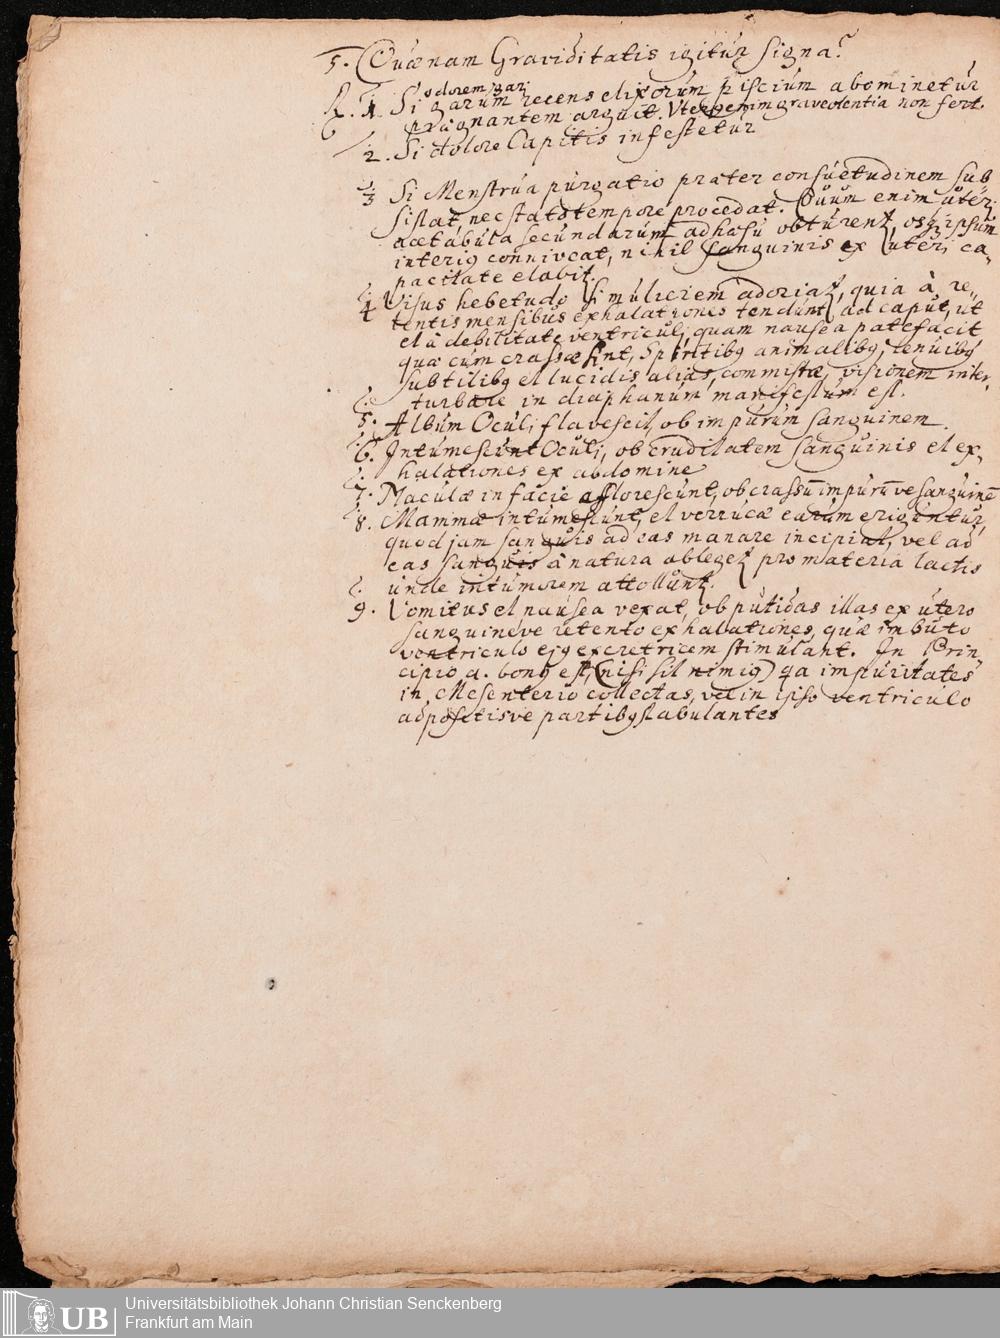 5. Quænam Graviditatis igitur signa?
odorem gari
R. 1. Si garum recens elixorum piscium abominetur
prægnantem arguit. Uterus enim graveolentia non fert.
2. Si dolore Capitis infestetur
3 Si Menstrua purgatio præter consuetudinem sub
sistat, nec stato tempore procedat. Quum enim uteri
acetabula secundarum adhæsu obturent, osq; ipsum
interiꝯ conniveat, nihil sanguinis ex uteri ca-
pacitate elabit.
4 Visus hebetudo si mulierem adoriat, quia à re-
tentis mensibus exhalationes tendunt ad caput, ut
et à debilitate ventriculi, quam nausea patefacit
quæ cum crassæ sint, Spiritibꝯ animalibꝯ, tenuibꝯ
subtilibꝯ et lucidis alias, commistæ, visionem inter-
turbare in diaphanum manifestum est.
5. Album Oculi flavescit, ob impurum sanguinem.
6. Intumescunt Oculi, ob cruditatem sanguinis et ex-
halationes ex abdomine
7. Maculæ in facie efflorescunt, ob crassū impurū ve sanguinē
8. Mammæ intumescunt, et verrucæ earum eriguntur,
quod jam sanguis ad eas manare incipiat, vel ad
eas sanguis à natura ableget pro materia lactis
unde in tumorem attollunt.
9. Vomitus et nausea vexat, ob putidas illas ex utero
sanguineve retento exhalationes, quæ imbuto
ventriculo ejꝯ excretricem stimulant. In Prin-
cipio a. bonꝯ est, (nisi sit nimiꝯ) qa impuritates
in Mesenterio collectas, vel in ipso ventriculo
adpositisve partibꝯ stabulantes
UB
Universitätsbibliothek Johann Christian Senckenberg
Frankfurt am Main